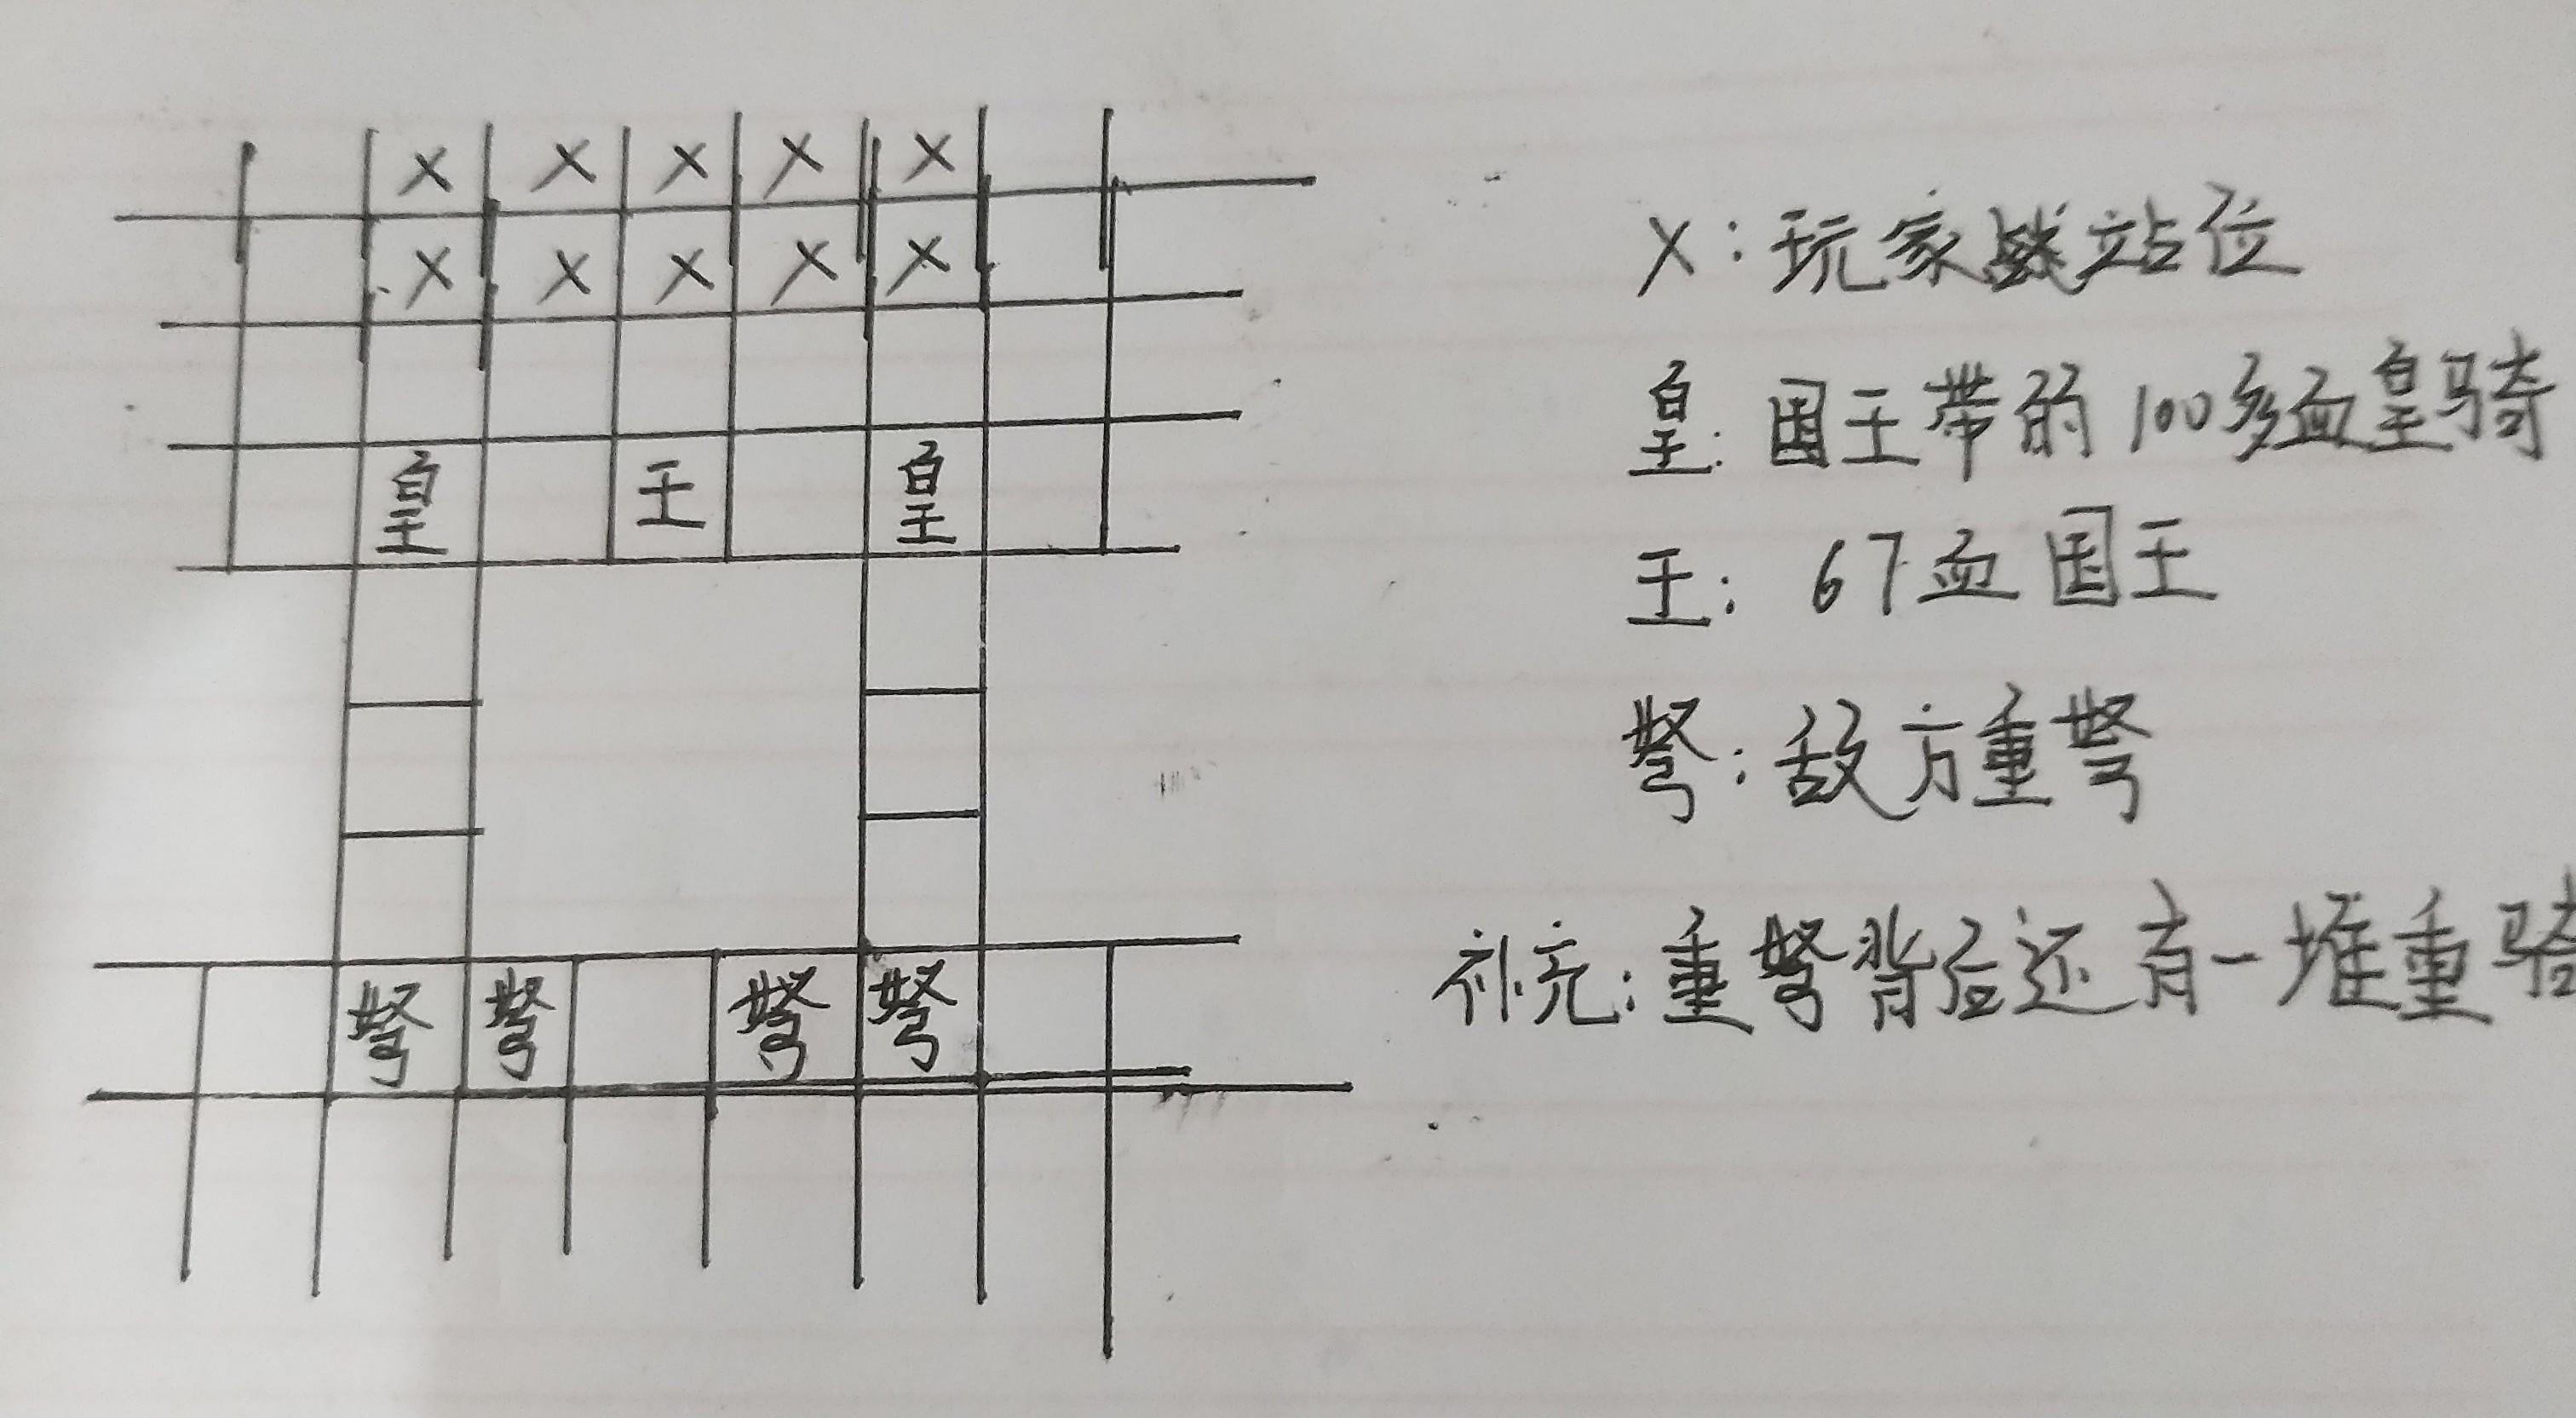 X X X X X
X X X X X
皇 王 皇
弩 弩 弩 弩
X：玩家站位
皇：国王带的100多血皇骑
王：67血国王
弩：敌方重弩
补充：重弩背后还有一堆重骑